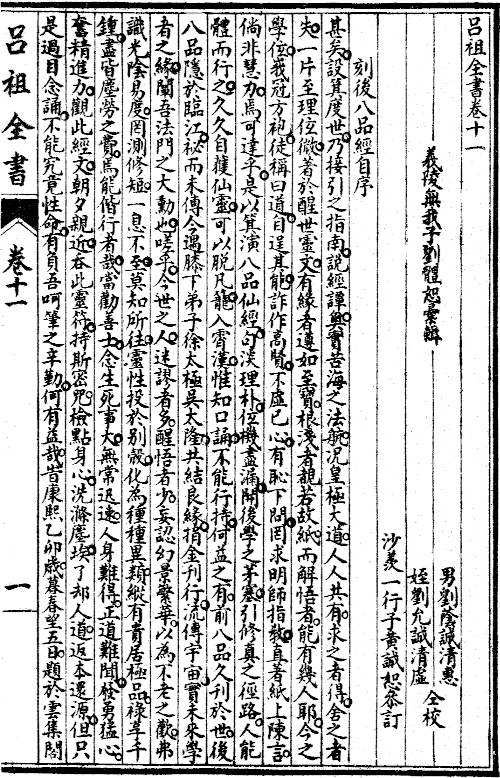 呂祖全書卷十一
義陵無我子劉體恕彙輯
男劉蔭誠清惠
姪劉允誠清虛 仝校
沙羨一行子黃誠恕叅訂
刻後八品經自序
甚矣設箕度世乃接引之指南說經譚奧實苦海之法航况皇極大道人人共有求之者得舍之者
失一片至理位微著於醒世靈文有緣者遵如至寶根淺者覩若故紙而解悟者能有幾人耶今之
學位我冠方袍徒稱曰道自逞其能詐作高賢不虛已心有恥下問罔求明師指教直著紙上陳言
倘非慧力焉可達乎是以箕演八品仙經句淡理朴位機盡漏開後學之茅塞引修真之徑路人能
體而行之久久自獲仙靈可以脫凡籠入霄漢惟知口誦不能行持何益之有前八品久刊於世後
八品隱於臨江祕而未傳今遇膝下弟子徐太極吳太隆共結良緣捐金刊行流傳宇宙實未來學
者之緣闡吾法門之大勳也嗟乎今世之人迷謬者多醒悟者少妄認幻景繁華以為不老之歡弗
識光陰易度罔測修短一息不至莫知所往靈性投於别殼化為種種異類縱有貴居極品祿享千
鍾盡皆塵勞之費焉能偕行者哉當勸善士念生死事大無常迅速人身難得正道難聞發勇猛心
奮精進力觀此經文朝夕親近吞此靈符持斯密咒檢點身心洗滌塵埃了却人道返本還源但只
是過目念誦不能究竟性命有負吾呵筆之辛勤何有益哉旹康熙乙卯歲暮春望五日題於雲集閣
呂祖全書 卷十一 一